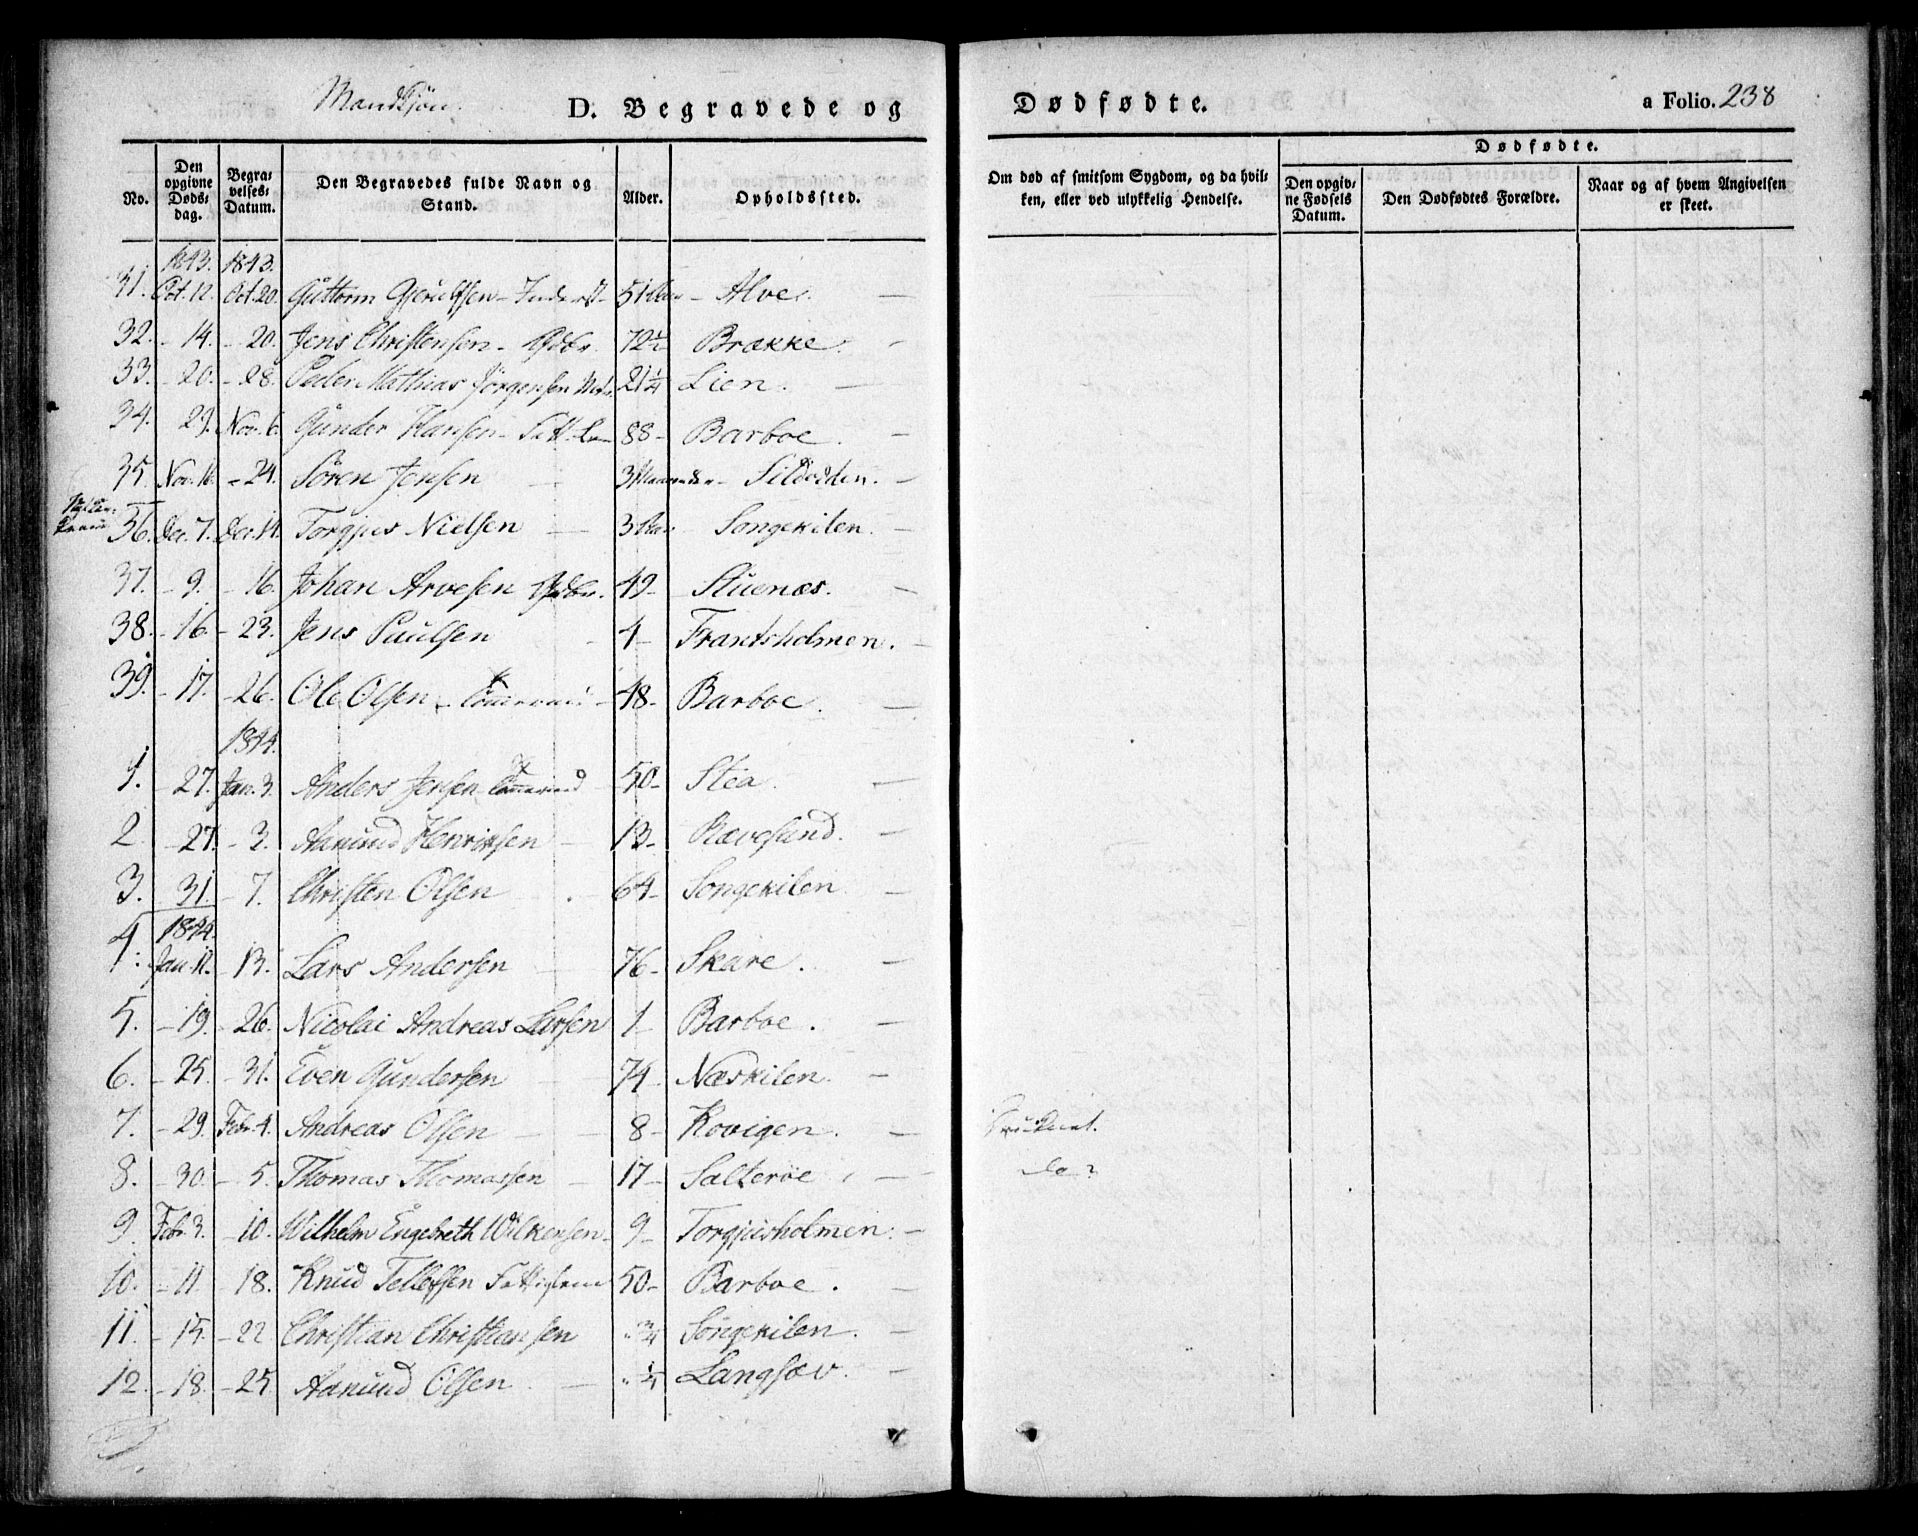 Mandkjön. D. Begravede og Dødfødte. a Folio. 238
No. Den opgivne Dødsdag. Begravelses-Datum. Den Begravedes fulde Navn og Stand. Alder. Opholdssted. Om død af smitsom Sygdom, og da hvilken, eller ved ulykkelig Hendelse. Dødfødte. Den opgivne Fødsels Datum. Den Dødfødtes Forældre. Naar og af hvem Angivelsen er skeet.
1843. 1843.
31. Oct. 12. Oct. 20. Guttorm Gjerulfsen - 51 Aar - Alve. —
32. - 14. - 20. Jens Christensen - Gdbr. 72½ Brække. -
33. - 20. - 28. Peder Mathias Jörgensen 21¼ Lien. —
34. 29. Nov. 6. Gunder Hansen - 88 - Barboe. -
35. Nov. 16. - 24. Sören Jensen — 3 Maaneder - Sildodden. -
36. Dec. 7. Dec. 14. Torgjus Nielsen — 3 Aar Songekilen. -
37. - 9. - 16. Johan Arvesen Gdbr. 49 - Stuenæs. -
38. - 16. - 23. Jens Paulsen - 4 - Frantsholmen. -
39. - 17. - 26. Ole Olsen - 48 - Barboe. —
1844.
1. - 27. Jan. 3. Anders Jensen 50 - Stea. —
2. - 27. - 3. Aanund Henriksen - 13 - Rævesand. -
3. 31. - 7. Christen Olsen - 64 - Songekilen -
1844.
4. Jan. 12. - 13. Lars Andersen — 76 - Skare. -
5. - 19. - 26. Nicolai Andreas Larsen 1 - Barboe. -
6. - 25. - 31. Even Gundersen — 74 - Næskilen. -
7. - 29. Febr. 4. Andreas Olsen — 8 - Kovigen. — Druknet.
8. - 30. - 5. Thomas Thomassen - 17 - Salteröe - do
9. Febr. 3. - 10. Wilhelm Engebreth Wilkensen - 9 - Torgjusholmen. -
10. - 11. 18. Knud Tellefsen Fattiglem 50 - Barboe. -
11. - 15. - 22 Christian Christiansen " ¾ Songekilen. -
12. - 18. - 25 Aanund Olsen. — " ¼ Langsæv. -